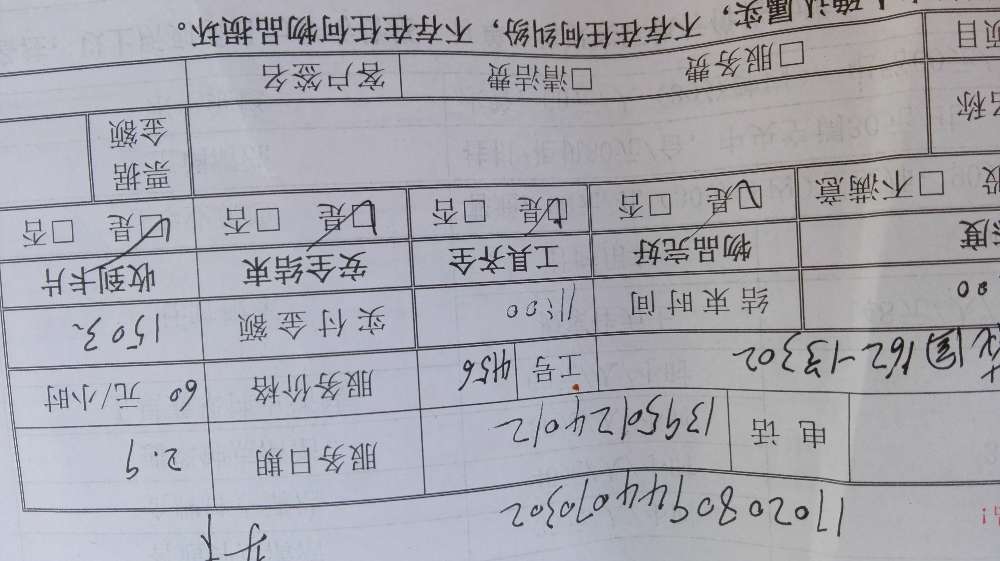 17020809444070302
电话 13950124012 服务日期 2.9
花园162-13302 工号 4156 服务价格 60 元/小时
00 结束时间 11:00 实付金额 150元
物品完好 工具齐全 安全结束 收到卡片
□不满意 □是 □否 □是 □否 □是 □否 □是 □否
名称 票据金额
项目 □服务费 □清洁费 客户签名
确认属实，不存在任何纠纷，不存在任何物品损坏。